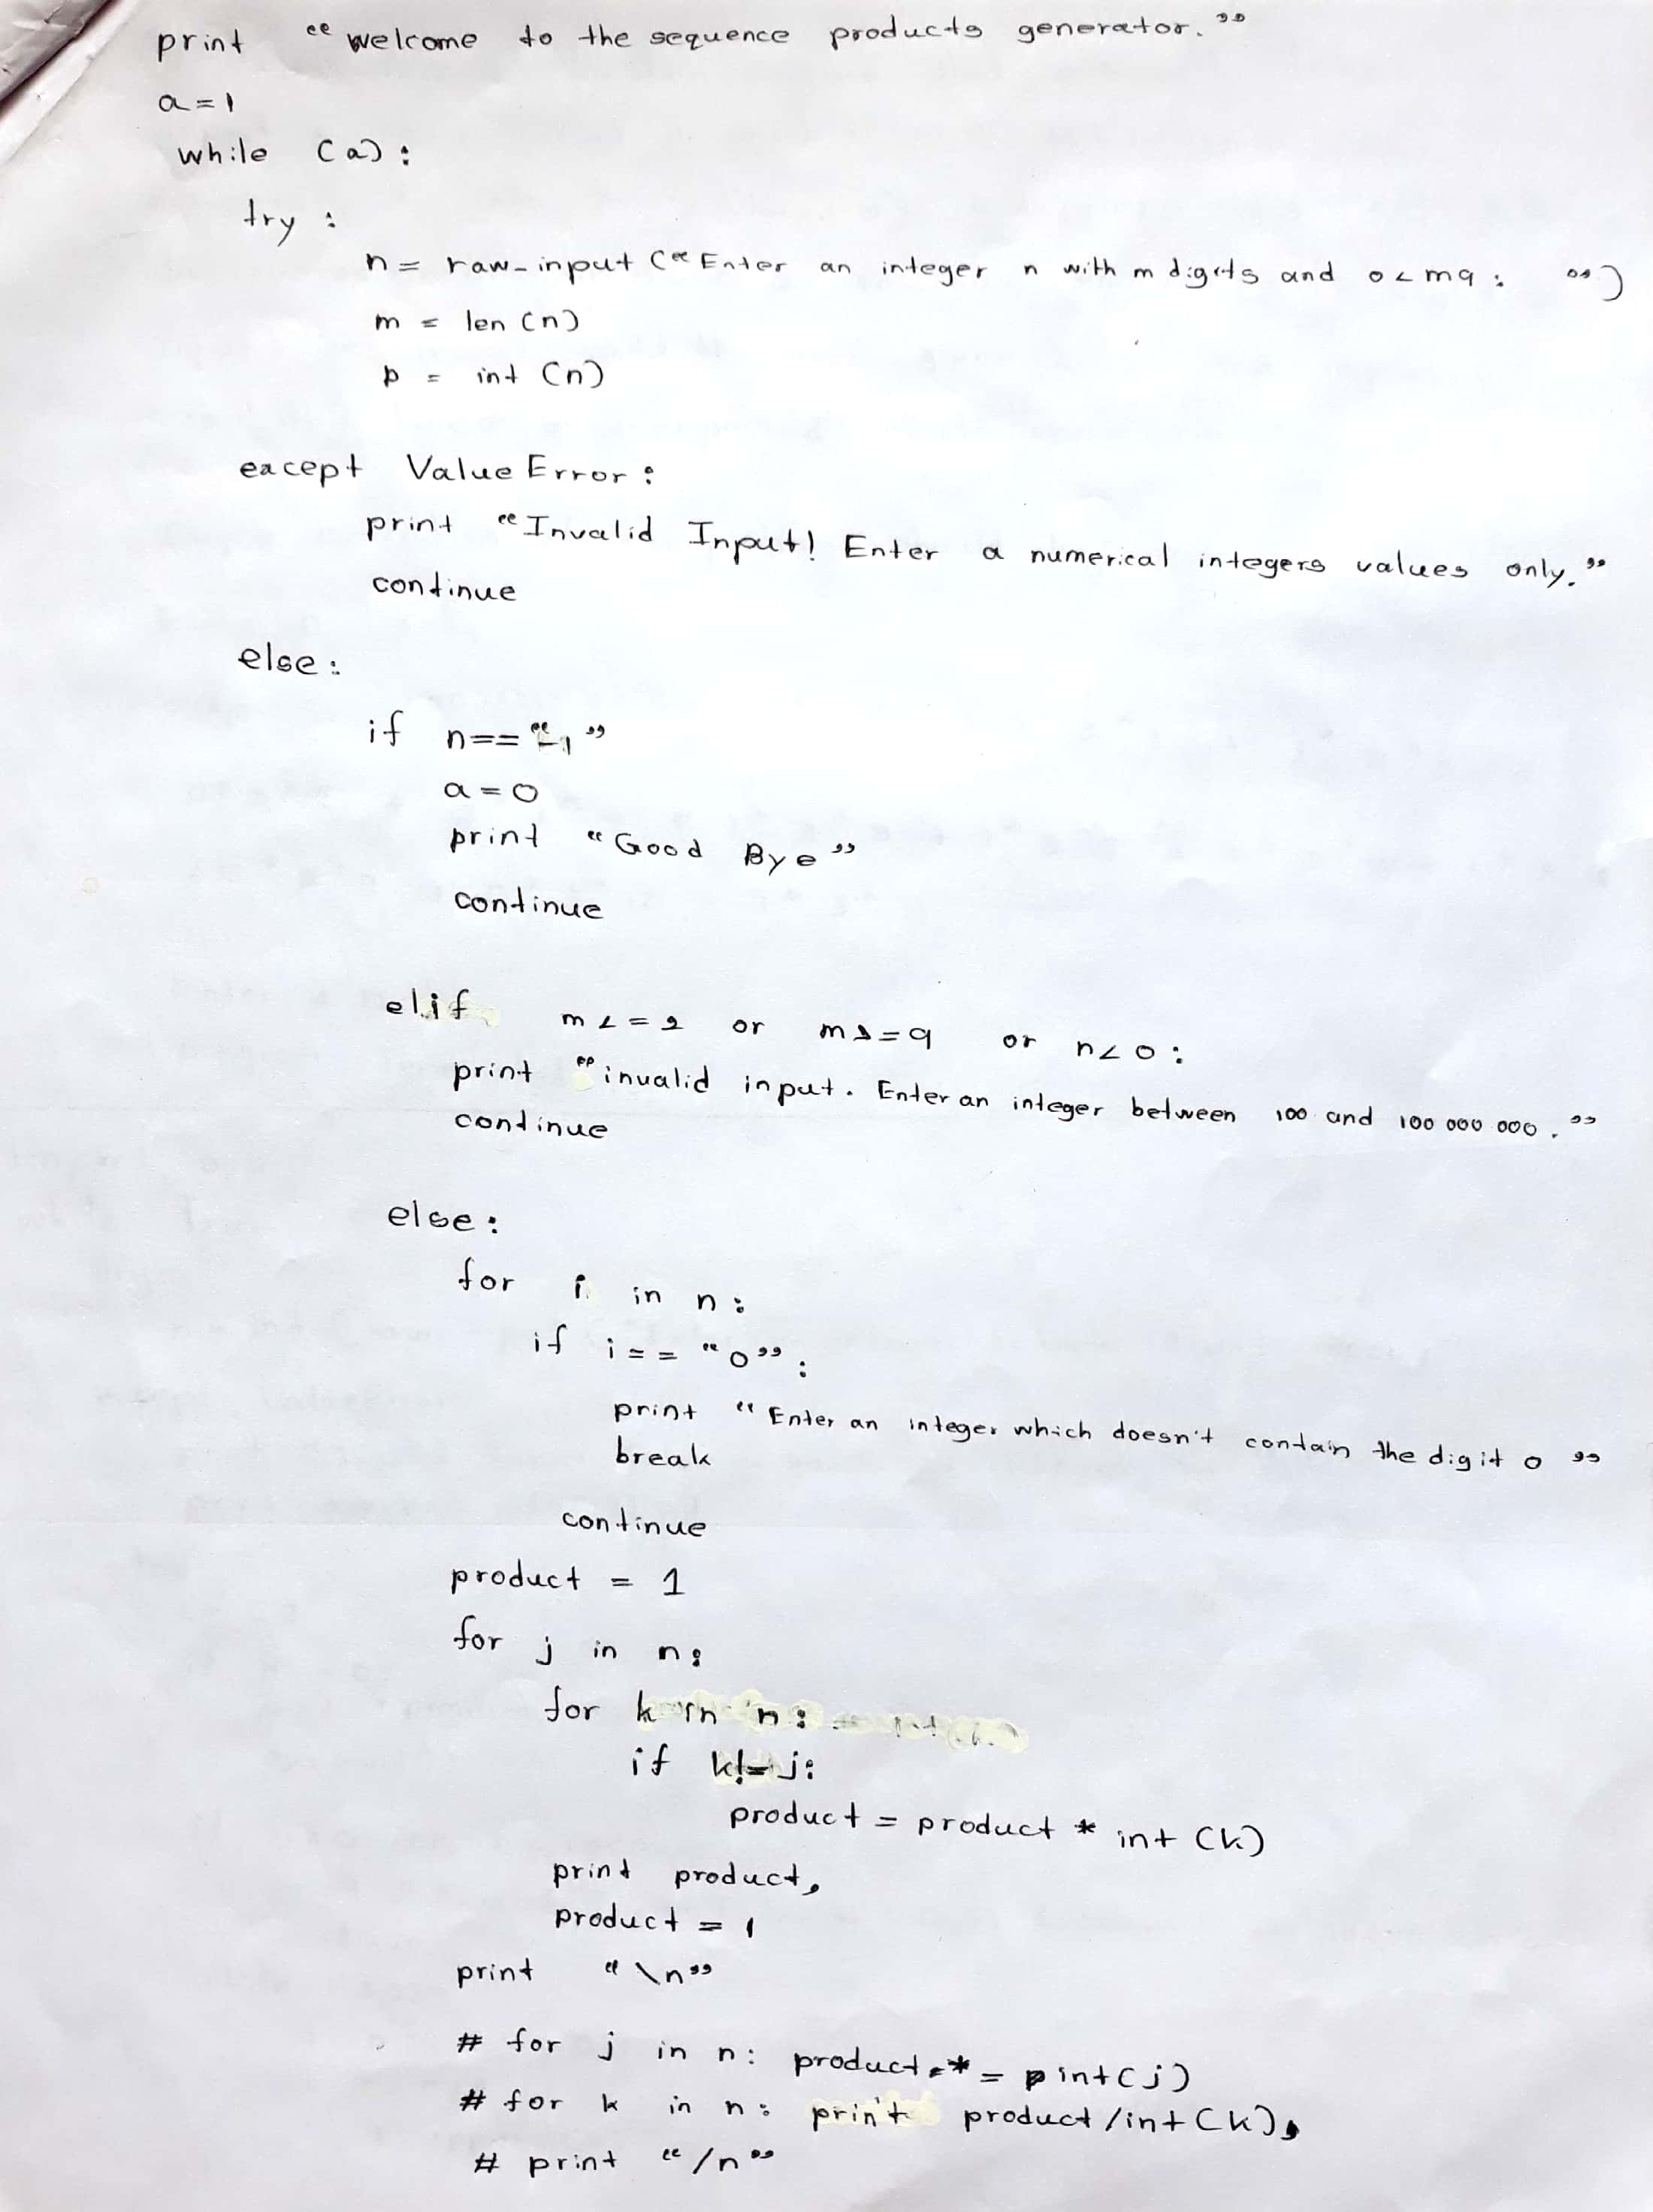 print “welcome to the sequence products generator.”
a=1
while (a):
try :
n = raw_input (“Enter an integer n with m digits and 0<m9: ”)
m = len (n)
p = int (n)
except Value Error :
print “Invalid Input! Enter a numerical integers values only.”
continue
else :
if n== “-1”
a=0
print “Good Bye”
continue
elif m<=2 or m>=9 or n<0 :
print “invalid input. Enter an integer between 100 and 100 000 000.”
continue
else :
for i in n :
if i == “0” :
print “Enter an integer which doesn't contain the digit 0”
break
continue
product = 1
for j in n :
for k in n :
if k!=j:
product = product * int (k)
print product,
product = 1
print “\n”
# for j in n: product *= int(j)
# for k in n : print product /int(k),
# print “/n”